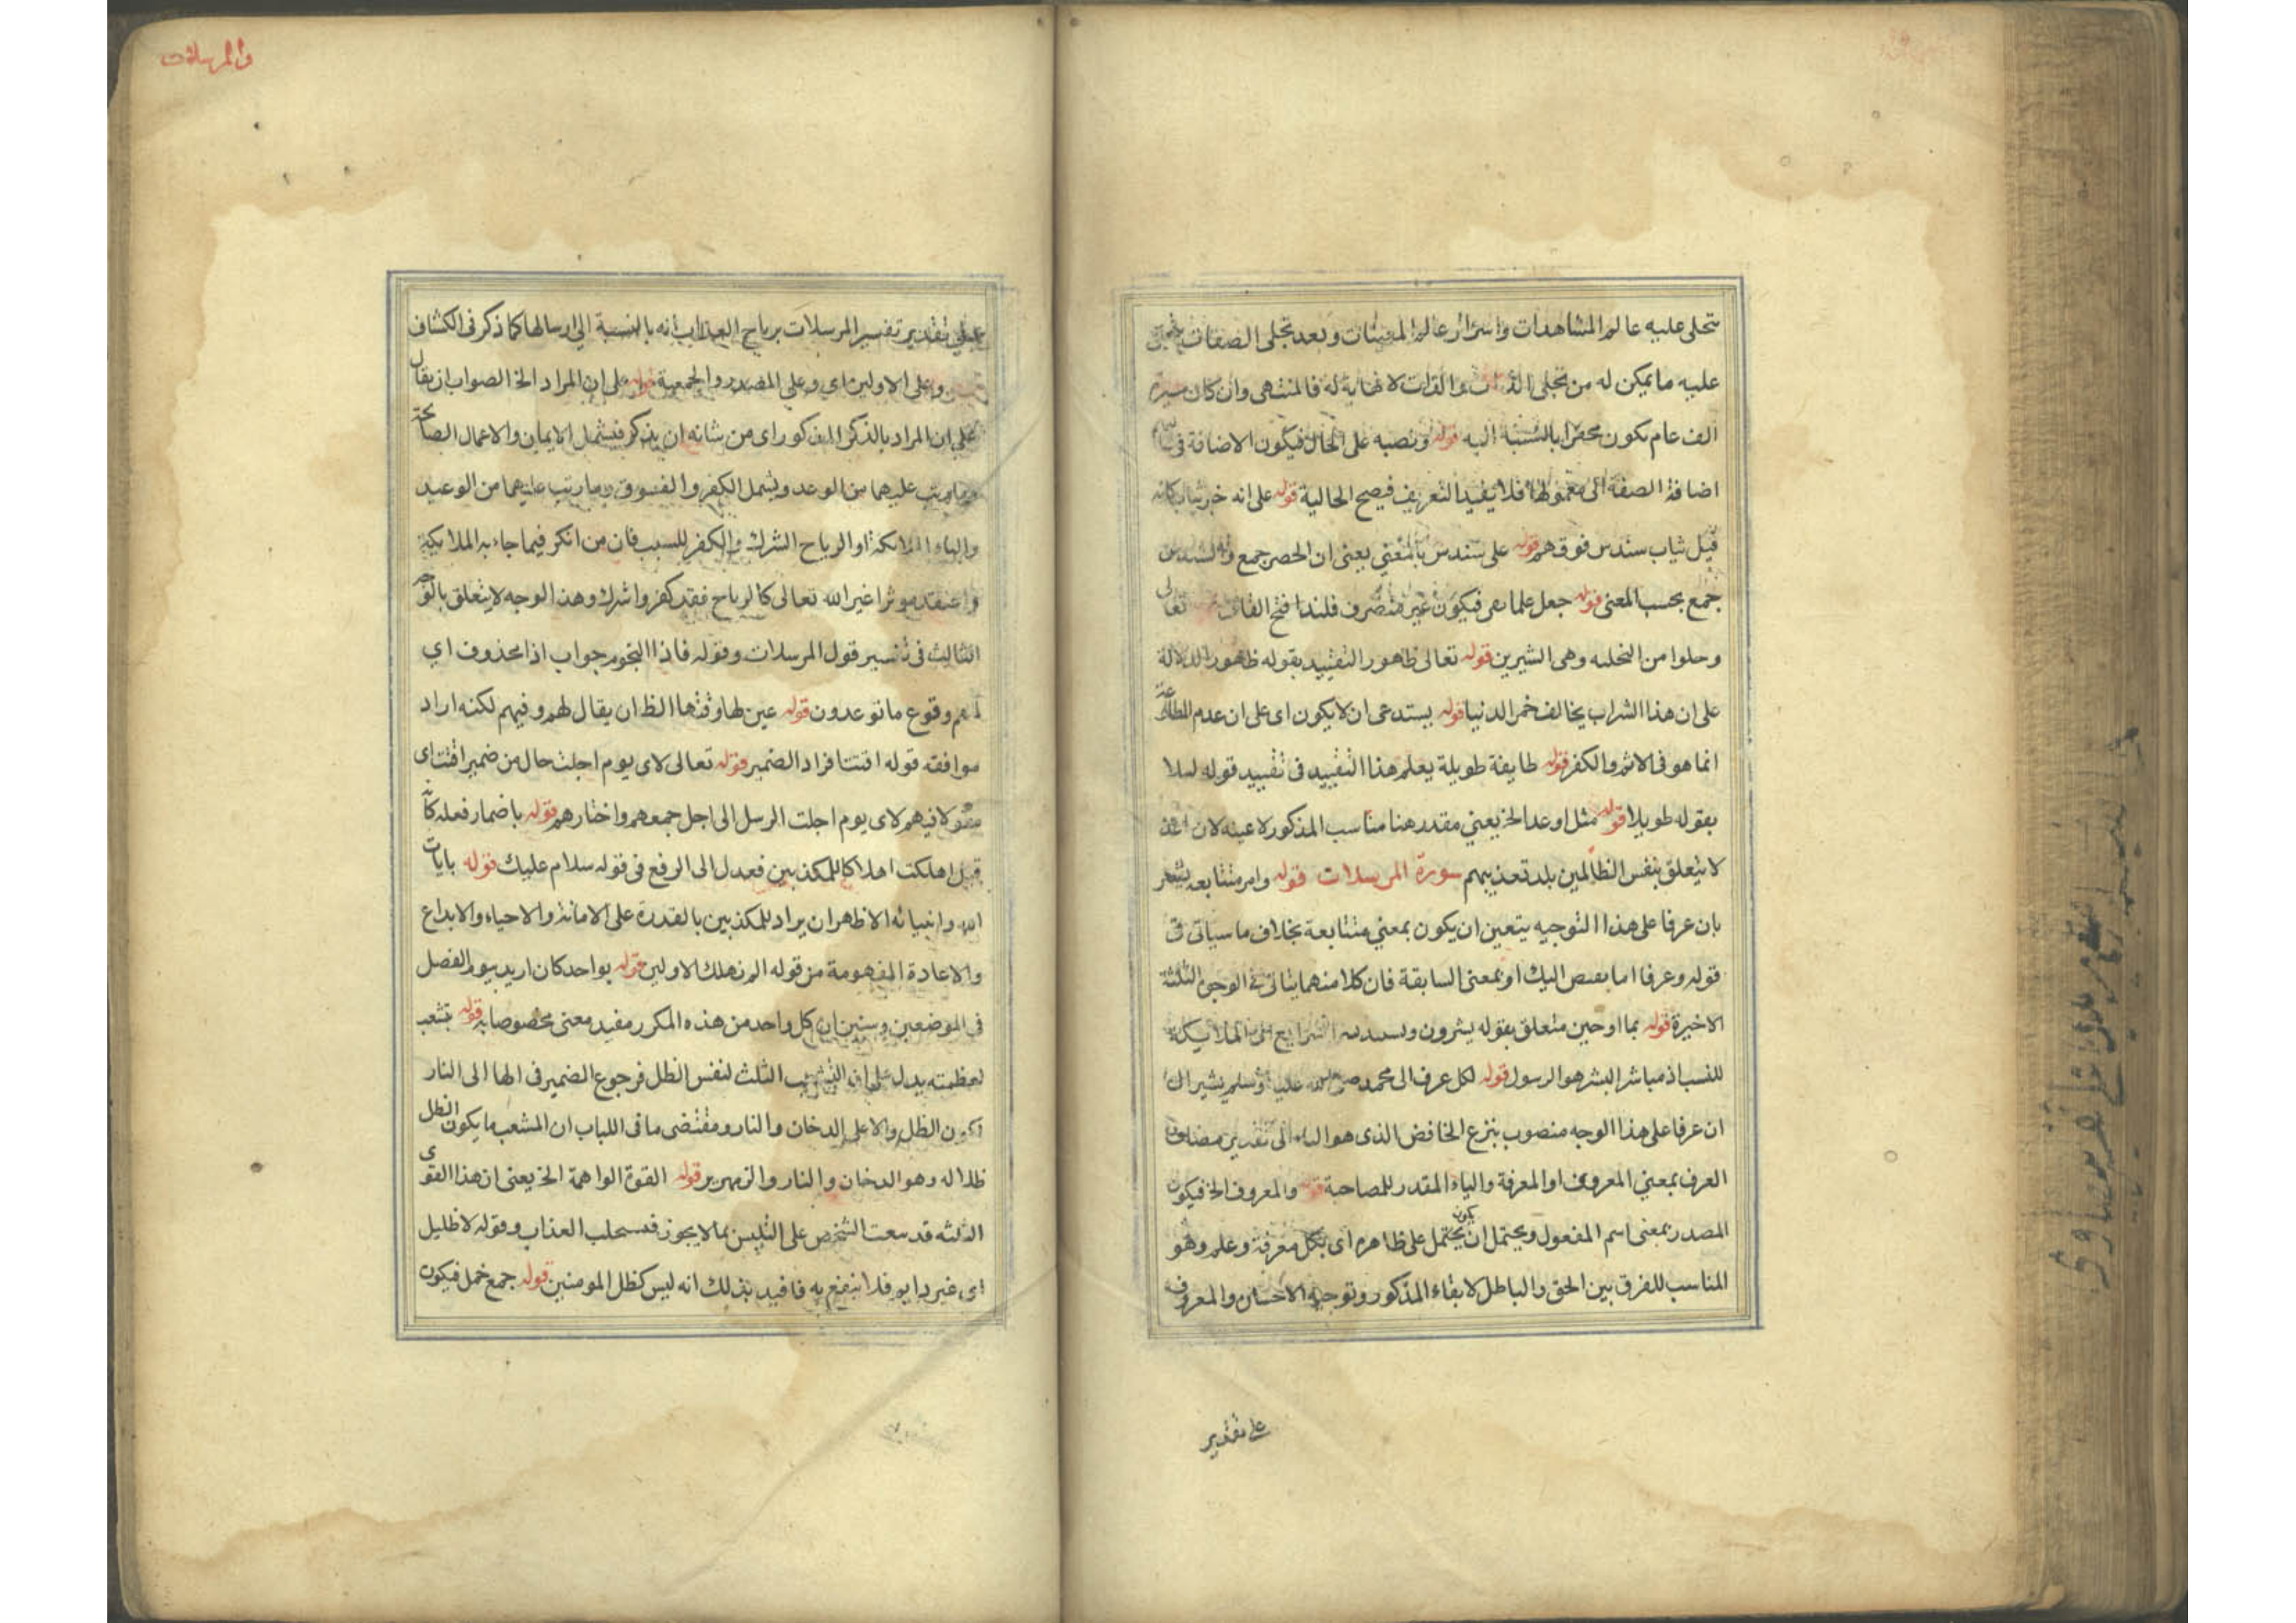 تتجلى عليه عالم المشاهدات واسرار عالم المغيبات وبعد تجلى الصفات
عليه ما يمكن له من تجلى الذات والذات لا نهاية له فالمنتهى وان كان سيره
الف عام يكون محقرا بالنسبة اليه قوله ونصبه على الحال فيكون الاضافة فى
اضافة الصفة الى معمولها فلا يفيد التعريف فيصح الحالية قوله على انه خبر ثياب كانه
قيل ثياب سندس فوقهم قوله على سندس بالمعنى يعنى ان الحصر جمع والسندس
جمع بحسب المعنى قوله جعل علما فيكون غير منصرف فلذا فتح القاف تعالى
وحلوا من التحليه وهى التزيين قوله تعالى طهور التقييد بقوله طهور الدلالة
على ان هذا الشراب يخالف خمر الدنيا قوله يستدعى ان لا يكون اى على ان عدم الطاعة
انما هو فى الاثم والكفر قوله طايفة طويلة يعلم هذا التقييد فى تقييد قوله ليلا
بقوله طويلا قوله مثل اوعد الخ يعنى مقدر هنا مناسب المذكور لا عينه لان اعد
لا يتعلق بنفس الظالمين بل بتعذيبهم سورة المرسلات قوله وامر متتابعه يشعر
بان عرفا على هذا التوجيه يتعين ان يكون بمعنى متتابعة بخلاف ما سياتى فى
قوله وعرفا اما بمعنى اليك او بمعنى السابقة فان كلا منهما يتاتى فى الوجوه الثلثة
الاخيرة قوله بما اوحين متعلق بقوله يشرون الشرايع الى الملايكة
للنسب اذ مباشر البشر هو الرسول قوله لكل عرف الى محمد صلى الله عليه وسلم يشير الى
ان عرفا على هذا الوجه منصوب بنزع الخافض الذى هو الباء الى تقدير مضاف
العرف بمعنى المعروف او المعرفة والباء المقدر للمصاحبة قوله والمعروف الخ فيكون
المصدر بمعنى اسم المفعول ويحتمل ان يكون يحتمل على ظاهره اى بكل معرفة وعلم وهو
المناسب للفرق بين الحق والباطل لابقاء المذكور وتوجيه الاحسان والمعروف
على تقدير
والمرسلات
على تقدير تفسير المرسلات برياح العذاب انه بالنسبة الى ارسالها كما ذكر فى الكشاف
وعلى الاولين اى وعلى المصدر والجمعية قوله على ان المراد الخ الصواب ان يقال
على ان المراد بالذكر المذكور اى من شانه ان يذكر فيشمل الايمان والاعمال الصالحة
وما رتب عليهما من الوعد ويشمل الكفر والفسوق وما رتب عليهما من الوعيد
والباء الملائكة او الرياح الشرك والكفر للسبب فان من انكر فيما جاء به الملايكة
واعتقد موثرا غير الله تعالى كالرياح فقد كفر واشرك وهذا الوجه لا يتعلق بالوجه
الثالث فى تفسير قول المرسلات وقوله فاذا النجوم جواب اذا محذوف اى
وقوع ما توعدون قوله عين لها وقتها الظ ان يقال لهم وفيهم لكنه اراد
موافقة قوله اقتتا فزاد الضمير قوله تعالى لاى يوم اجلت حال من ضمير اقتت اى
مقولا فيهم لاى يوم اجلت الرسل الى اجل جمعهم واختارهم قوله باضمار فعله كانه
قيل اهلكت اهلاكا للمكذبين فعدل الى الرفع فى قوله سلام عليك قوله بايات
الله وانبيائه الاظهر ان يراد للمكذبين بالقدرة على الاماتة والاحياء والابداع
والاعادة المفهومة من قوله الم نهلك الاولين قوله يواحد كان اريد بيوم الفصل
فى الموضعين وسنبين ان كل واحد من هذه المكرر مفيد معنى مخصوصا به قوله يتشعب
لعظمته يدل على ان التشعب الثلث لنفس الظل فرجوع الضمير فى الها الى النار
تكون الظل والاعلى الدخان والنار ومقتضى ما فى اللباب ان المشعب ما يكون الظل
ظلا له وهو الدخان والنار والزمهرير قوله القوة الواهمة الخ يعنى ان هذا القوى
الثلثه قد سعت الشخص على التلبس بما لا يجوز فسحلب العذاب وقوله لا ظليل
اى غير دايم فلا ينتفع به فافيد بذلك انه ليس كظل المومنين قوله جمع خمل فيكون